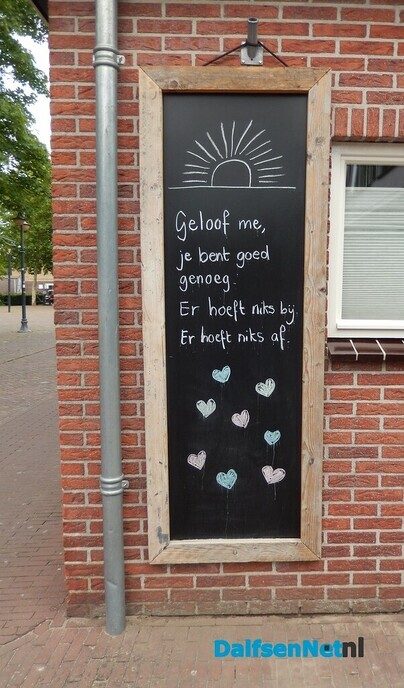 Geloof me,
je bent goed
genoeg.
Er hoeft niks bij.
Er hoeft niks af.
DalfsenNet.nl